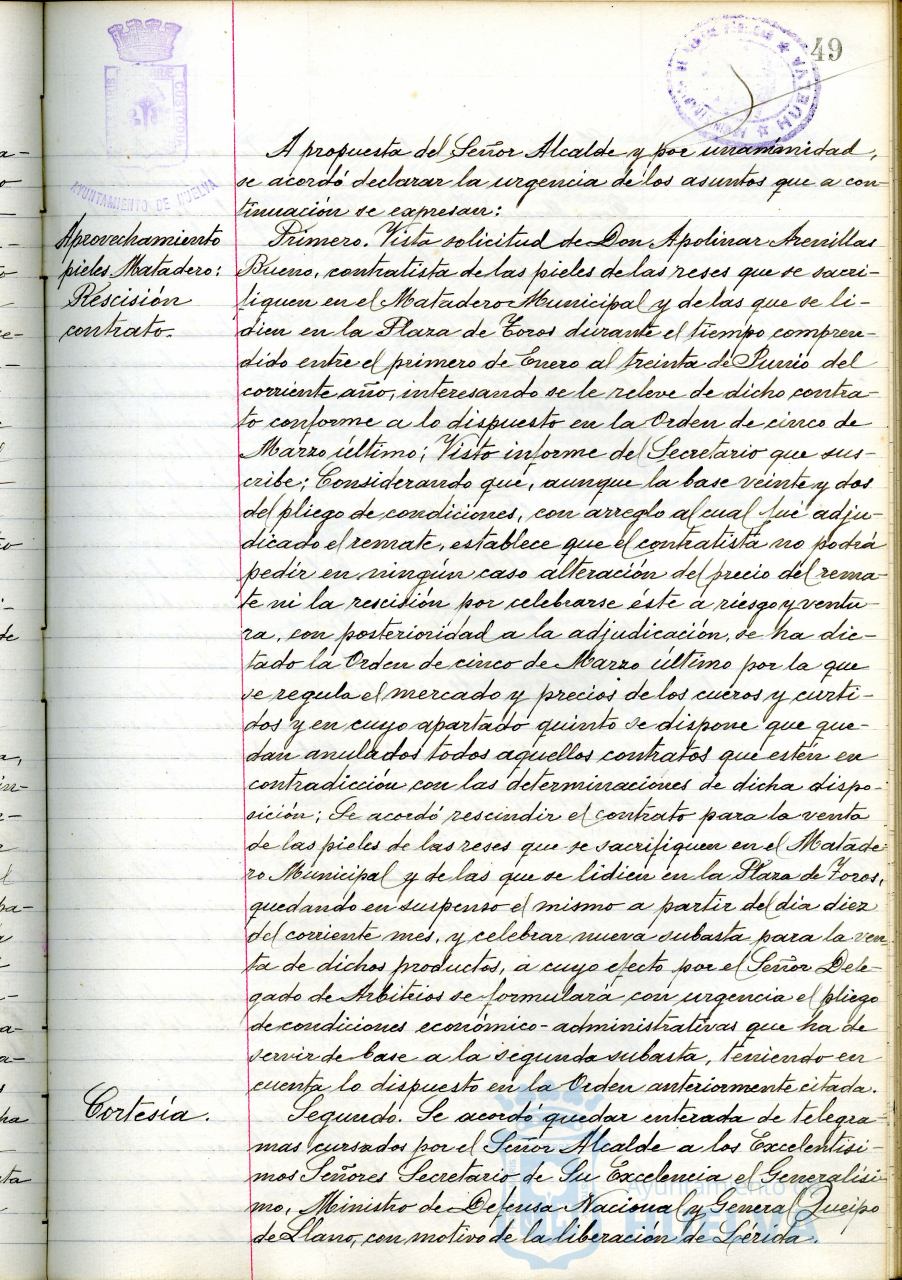 49
AYUNTAMIENTO DE HUELVA
A propuesta del Señor Alcalde y por unanimidad,
se acordó declarar la urgencia de los asuntos que a con-
tinuación se expresan:
Aprovechamiento
pieles Matadero:
Rescisión
contrato.
Primero. Vista solicitud de Don Apolinar Arenillas
Bueno, contratista de las pieles de las reses que se sacri-
fiquen en el Matadero Municipal y de las que se li-
dien en la Plaza de Toros durante el tiempo compren-
dido entre el primero de Enero al treinta de Junio del
corriente año, interesando se le releve de dicho contra-
to conforme a lo dispuesto en la Orden de cinco de
Marzo último; Visto informe del Secretario que sus-
cribe; Considerando que, aunque la base veinte y dos
del pliego de condiciones, con arreglo al cual fué adju-
dicado el remate, establece que el contratista no podrá
pedir en ningún caso alteración del precio del rema-
te ni la rescisión por celebrarse éste a riesgo y ventu-
ra, con posterioridad a la adjudicación, se ha dic-
tado la Orden de cinco de Marzo último por la que
se regula el mercado y precios de los cueros y curti-
dos y en cuyo apartado quinto se dispone que que-
dan anulados todos aquellos contratos que estén en
contradicción con las determinaciones de dicha dispo-
sición; Se acordó rescindir el contrato para la venta
de las pieles de las reses que se sacrifiquen en el Matade-
ro Municipal y de las que se lidien en la Plaza de Toros,
quedando en suspenso el mismo a partir del día diez
del corriente mes, y celebrar nueva subasta para la ven-
ta de dichos productos, a cuyo efecto por el Señor Dele-
gado de Arbitrios se formulará con urgencia el pliego
de condiciones económico-administrativas que ha de
servir de base a la segunda subasta, teniendo en
cuenta lo dispuesto en la Orden anteriormente citada.
Cortesía.
Segundo. Se acordó quedar enterada de telegra-
mas cursados por el Señor Alcalde a los Excelentísi-
mos Señores Secretario de Su Excelencia el Generalísi-
mo, Ministro de Defensa Nacional y General Queipo
de Llano, con motivo de la liberación de Lérida.
Ayuntamiento de
HUELVA